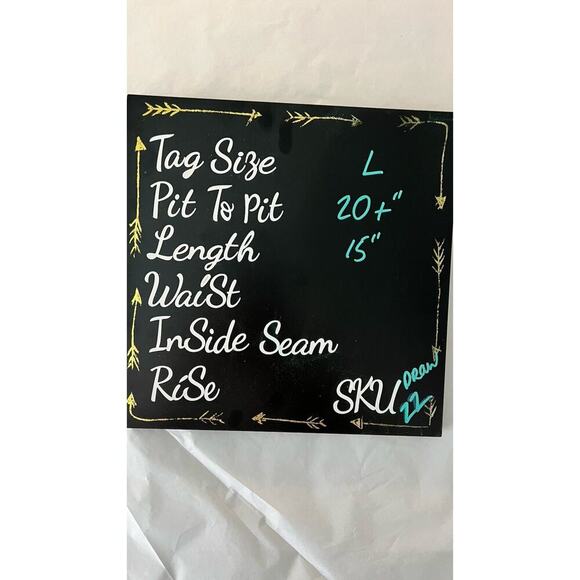 Tag Size L
Pit To Pit 20+"
Length 15"
WaiSt
InSide Seam
RiSe
SKU DRAW 22